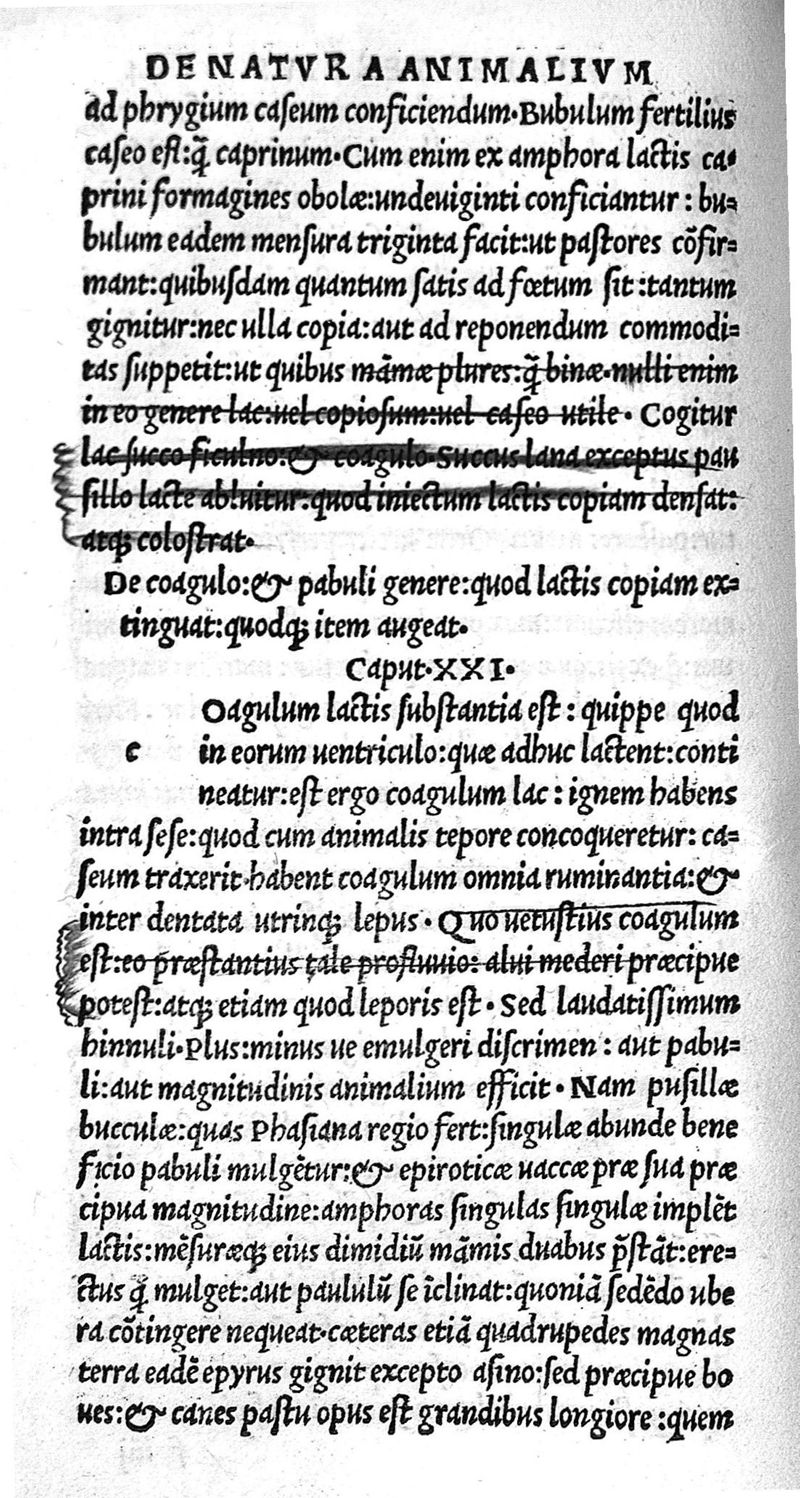 DE NATVRA ANIMALIVM
ad phrygium caseum conficiendum·Bubulum fertilius
caseo est:q̃ caprinum·Cum enim ex amphora lactis ca⸗
prini formagines obolæ:undeuiginti conficiantur : bu⸗
bulum eadem mensura triginta facit:ut pastores cõfir⸗
mant:quibusdam quantum satis ad fœtum sit :tantum
gignitur:nec ulla copia:aut ad reponendum commodi⸗
tas suppetit:ut quibus mãmæ plures:q̃ binæ·nulli enim
in eo genere lac:uel copiosum:uel caseo utile · Cogitur
lac succo ficulno:& coagulo·Succus lana exceptus pau
sillo lacte abluitur:quod iniectum lactis copiam densat:
atq; colostrat·
De coagulo:& pabuli genere:quod lactis copiam ex⸗
tinguat:quodq; item augeat·
Caput·XXI·
Oagulum lactis substantia est : quippe quod
c in eorum uentriculo:quæ adhuc lactent:conti
neatur:est ergo coagulum lac : ignem habens
intra sese:quod cum animalis tepore concoqueretur: ca⸗
seum traxerit·habent coagulum omnia ruminantia:&
inter dentata utrinq; lepus · Quo uetustius coagulum
est:eo præstantius tale profluuio: alui mederi præcipue
potest:atq; etiam quod leporis est · Sed laudatissimum
hinnuli·Plus:minus ue emulgeri discrimen : aut pabu⸗
li:aut magnitudinis animalium efficit · Nam pusillæ
bucculæ:quas Phasiana regio fert:singulæ abunde bene
ficio pabuli mulgẽtur:& epiroticæ uaccæ præ sua præ
cipua magnitudine:amphoras singulas singulæ implẽt
lactis:mẽsuræq; eius dimidiũ mãmis duabus p̃stãt:ere⸗
ctus q̃ mulget:aut paululũ se ĩclinat:quoniã sedẽdo ube
ra cõtingere nequeat·cæteras etiã quadrupedes magnas
terra eadẽ epyrus gignit excepto asino:sed præcipue bo
ues:& canes pastu opus est grandibus longiore :quem